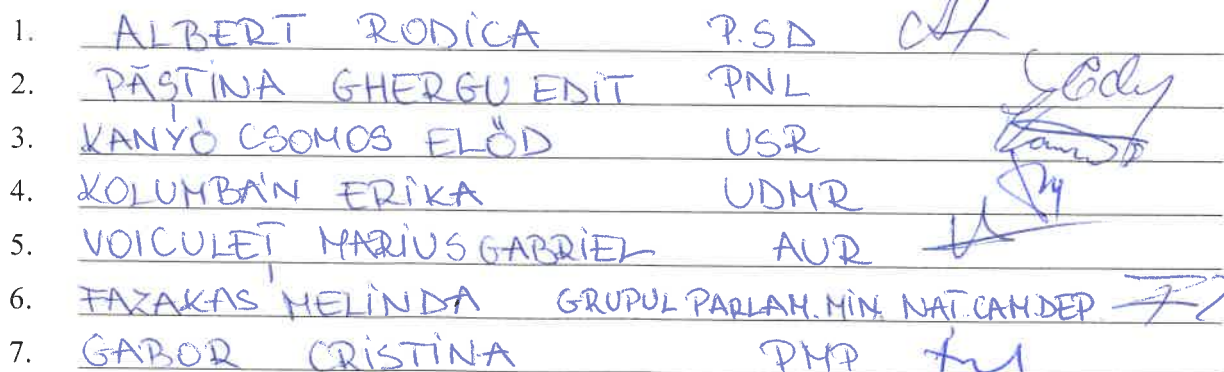 1. ALBERT RODICA P.SD
2. PĂȘTINA GHERGU EDIT PNL
3. KANYÓ CSOMOS ELŐD USR
4. KOLUMBÁN ERIKA UDMR
5. VOICULEȚ MARIUS GABRIEL AUR
6. FAZAKAS MELINDA GRUPUL PARLAM. MIN. NAT. CAM.DEP
7. GABOR CRISTINA PMP